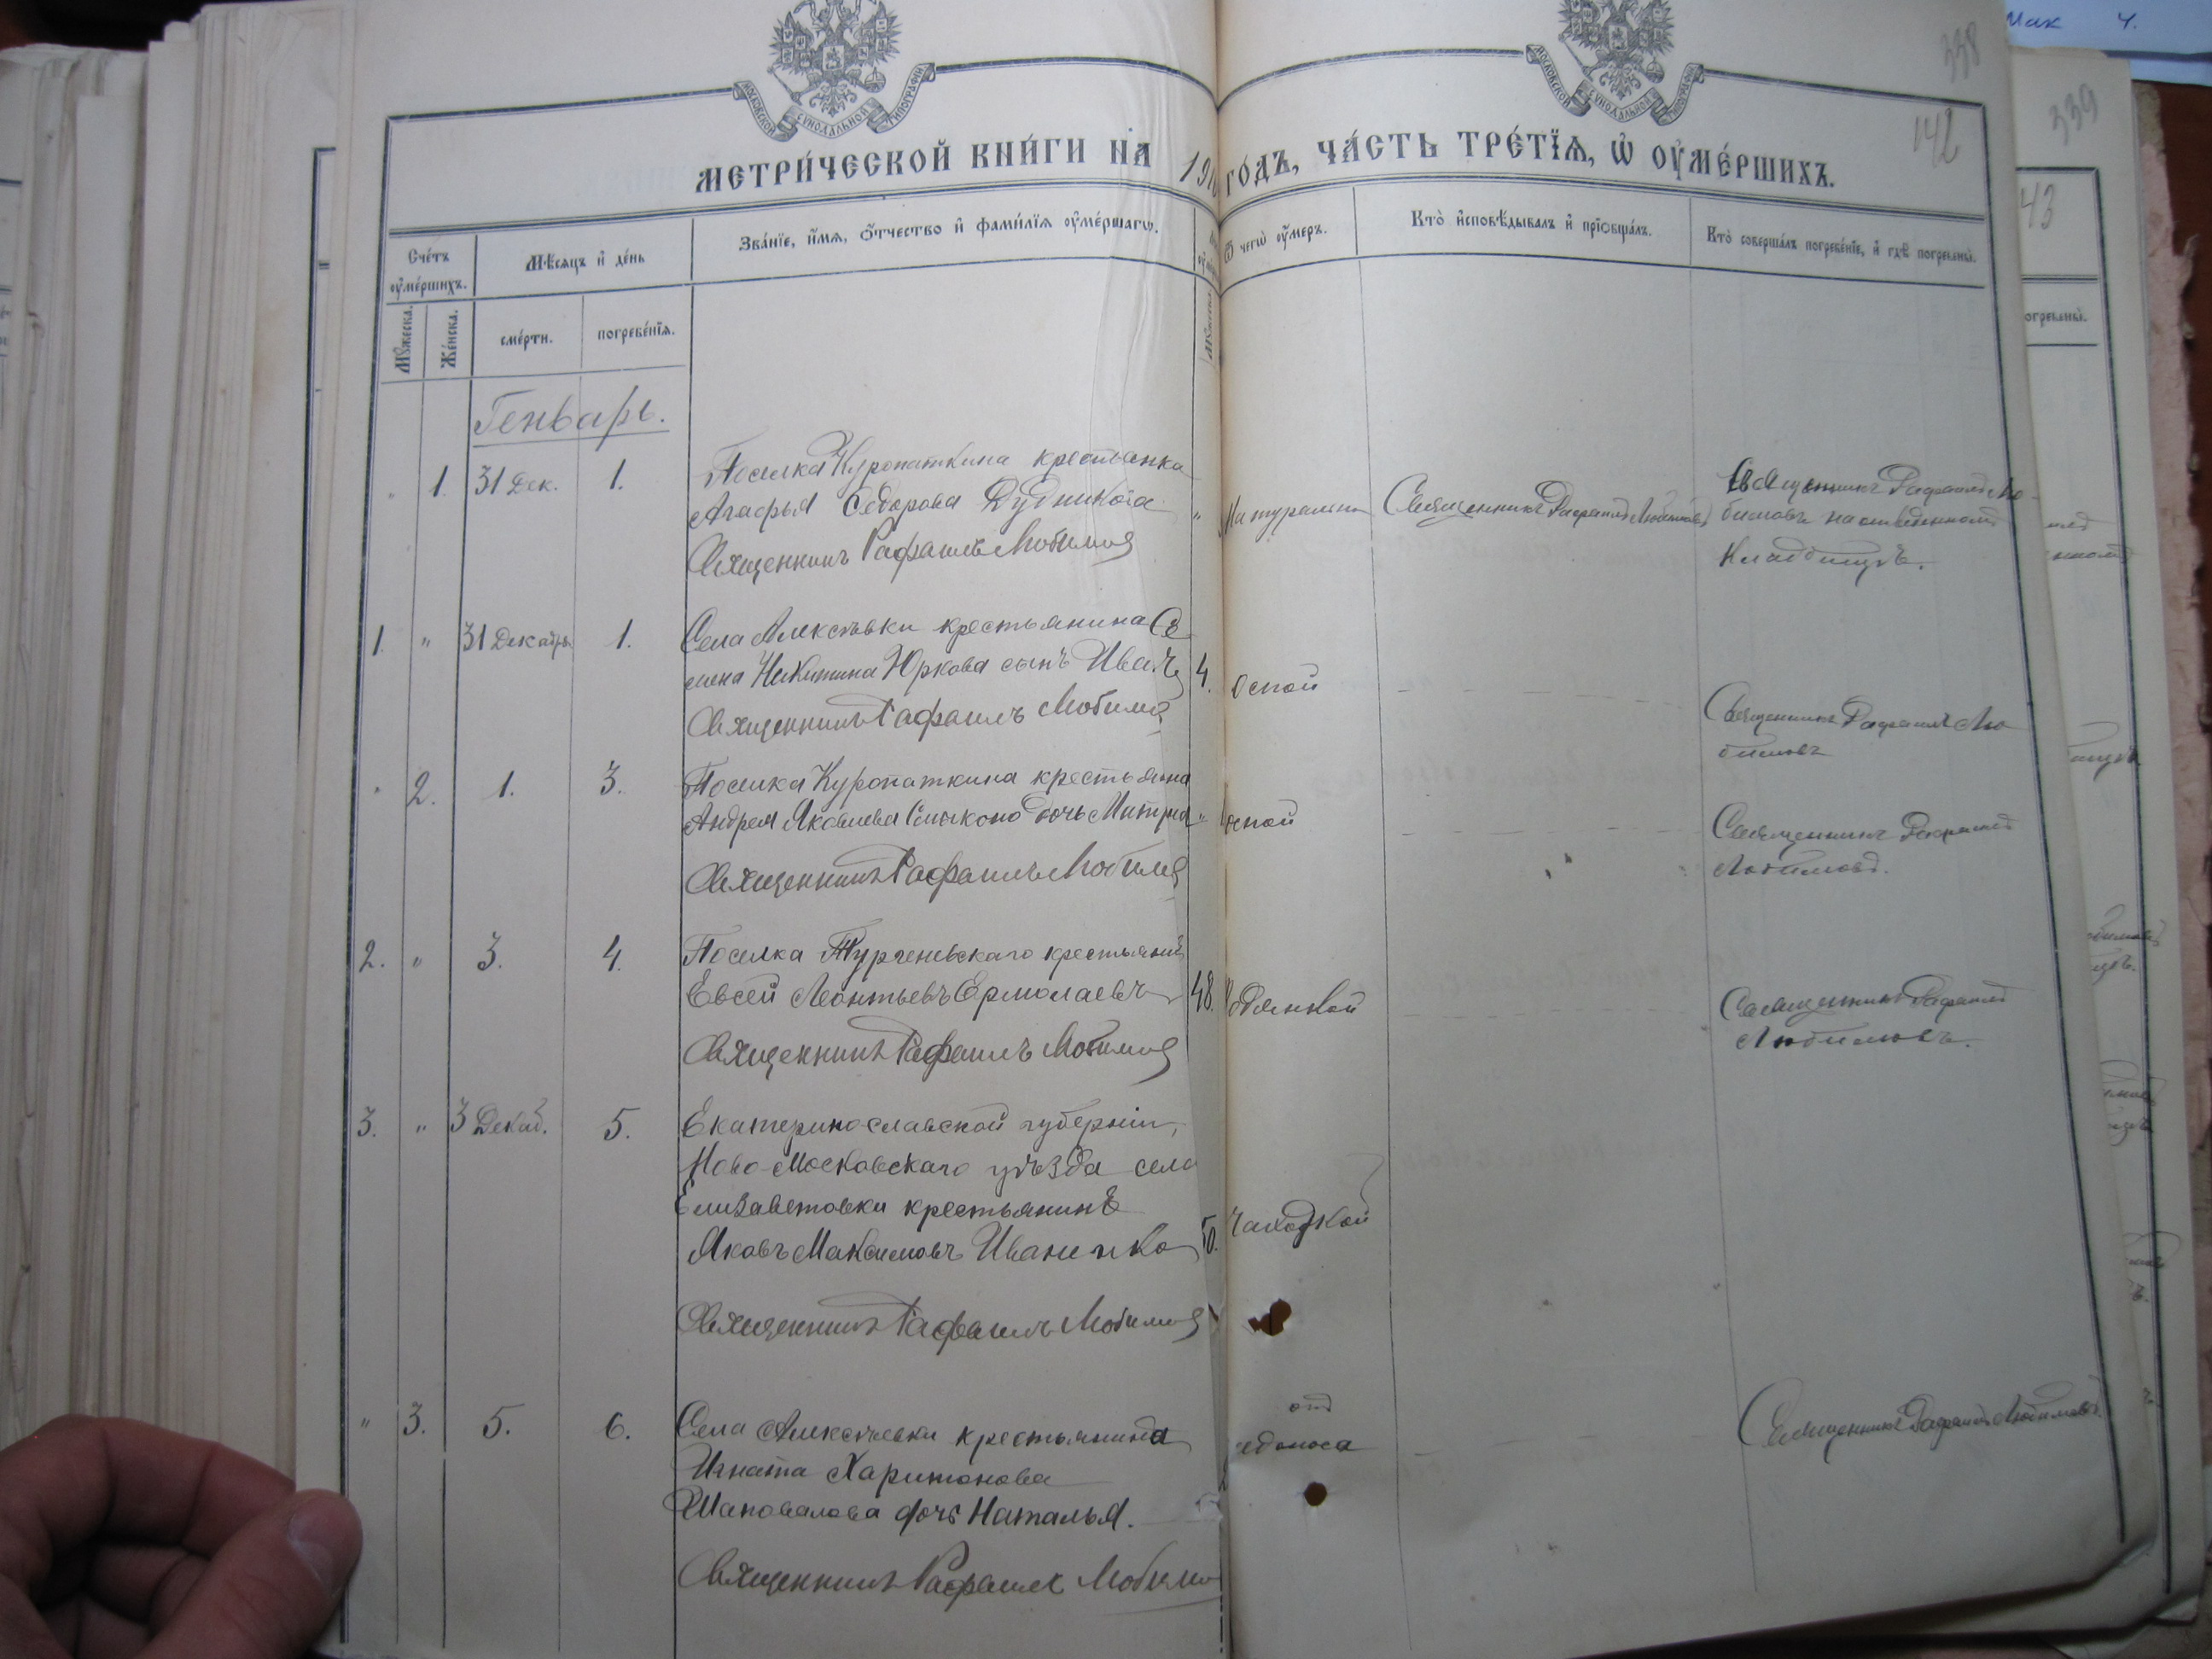 Мак 4.
338
142
339
43
МОСКОВСКОЙ СѴНОДАЛЬНОЙ ТИПОГРАФИИ
МОСКОВСКОЙ СѴНОДАЛЬНОЙ ТИПОГРАФИИ
МЕТРИ́ЧЕСКОЙ КНИ́ГИ НА 191 ГО́ДЪ, ЧА́СТЬ ТРЕ́ТЇѦ, Ѡ҆ ОУ҆МЕ́РШИХЪ.
Сче́тъ оу҆ме́ршихъ.
Мѣ́сяцъ и҆ де́нь
Зва́нїе, и҆́мѧ, ѻ҆́тчество и҆ фами́лїѧ оу҆ме́ршагѡ.
Ѿ чегѡ̀ оу҆́меръ.
Кто̀ и҆сповѣ́дывалъ и҆ прїѡбща́лъ.
Кто̀ соверша́лъ погребе́нїе, и҆ гдѣ̀ погребены̀.
Мꙋ́жеска.
Же́нска.
сме́рти.
погребе́нїѧ.
Генварь.
" 1. 31 Дек. 1.
Поселка Куропаткина крестьянка
Агафья Федорова Дудникова "
Священникъ Рафаилъ Любимов
Натуральн
Священникъ Рафаилъ Любимовъ
Священникъ Рафаилъ Лю-
бимовъ на отведенномъ
кладбищѣ.
1. " 31 Декабря 1.
Села Алексѣевки крестьянина Се
мена Никитина Юркова сынъ Иванъ 4.
Священникъ Рафаилъ Любимов
оспой
Священникъ Рафаилъ Лю
бимовъ
" 2. 1. 3.
Поселка Куропаткина крестьянина
Андрея Яковлева дочь Матрна "
Священникъ Рафаилъ Любимов
оспой
Священникъ Рафаилъ
Любимовъ.
2. " 3. 4.
Поселка Тургеневскаго крестьянинъ
Евсей Леонтьевъ Ермолаевъ 48.
Священникъ Рафаилъ Любимов
водянкой
Священникъ Рафаилъ
Любимовъ.
3. " 3 Декаб. 5.
Екатеринославской губерніи,
Ново-Московскаго уѣзда села
Елизаветовки крестьянинъ
Яковъ Максимовъ Иваненко 50.
Священникъ Рафаилъ Любимов
чахоткой
" 3. 5. 6.
Села Алексѣевки крестьянина
Игната Харитонова
Шаповалова дочь Наталья.
Священникъ Рафаилъ Любимо
отъ
недоноса
Священникъ Рафаилъ Любимовъ.